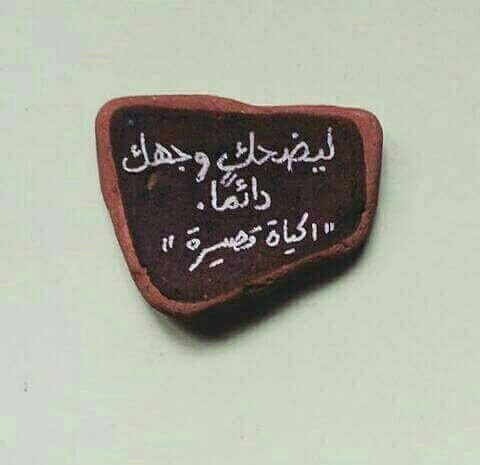 ليضحك وجهك
دائمًا.
"الحياة قصيرة"